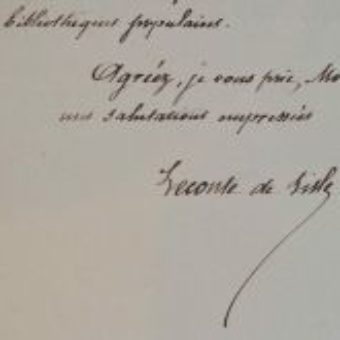 bibliothèques populaires.
Agréez, je vous prie, Mo
mes salutations empressées
Leconte de Lisle